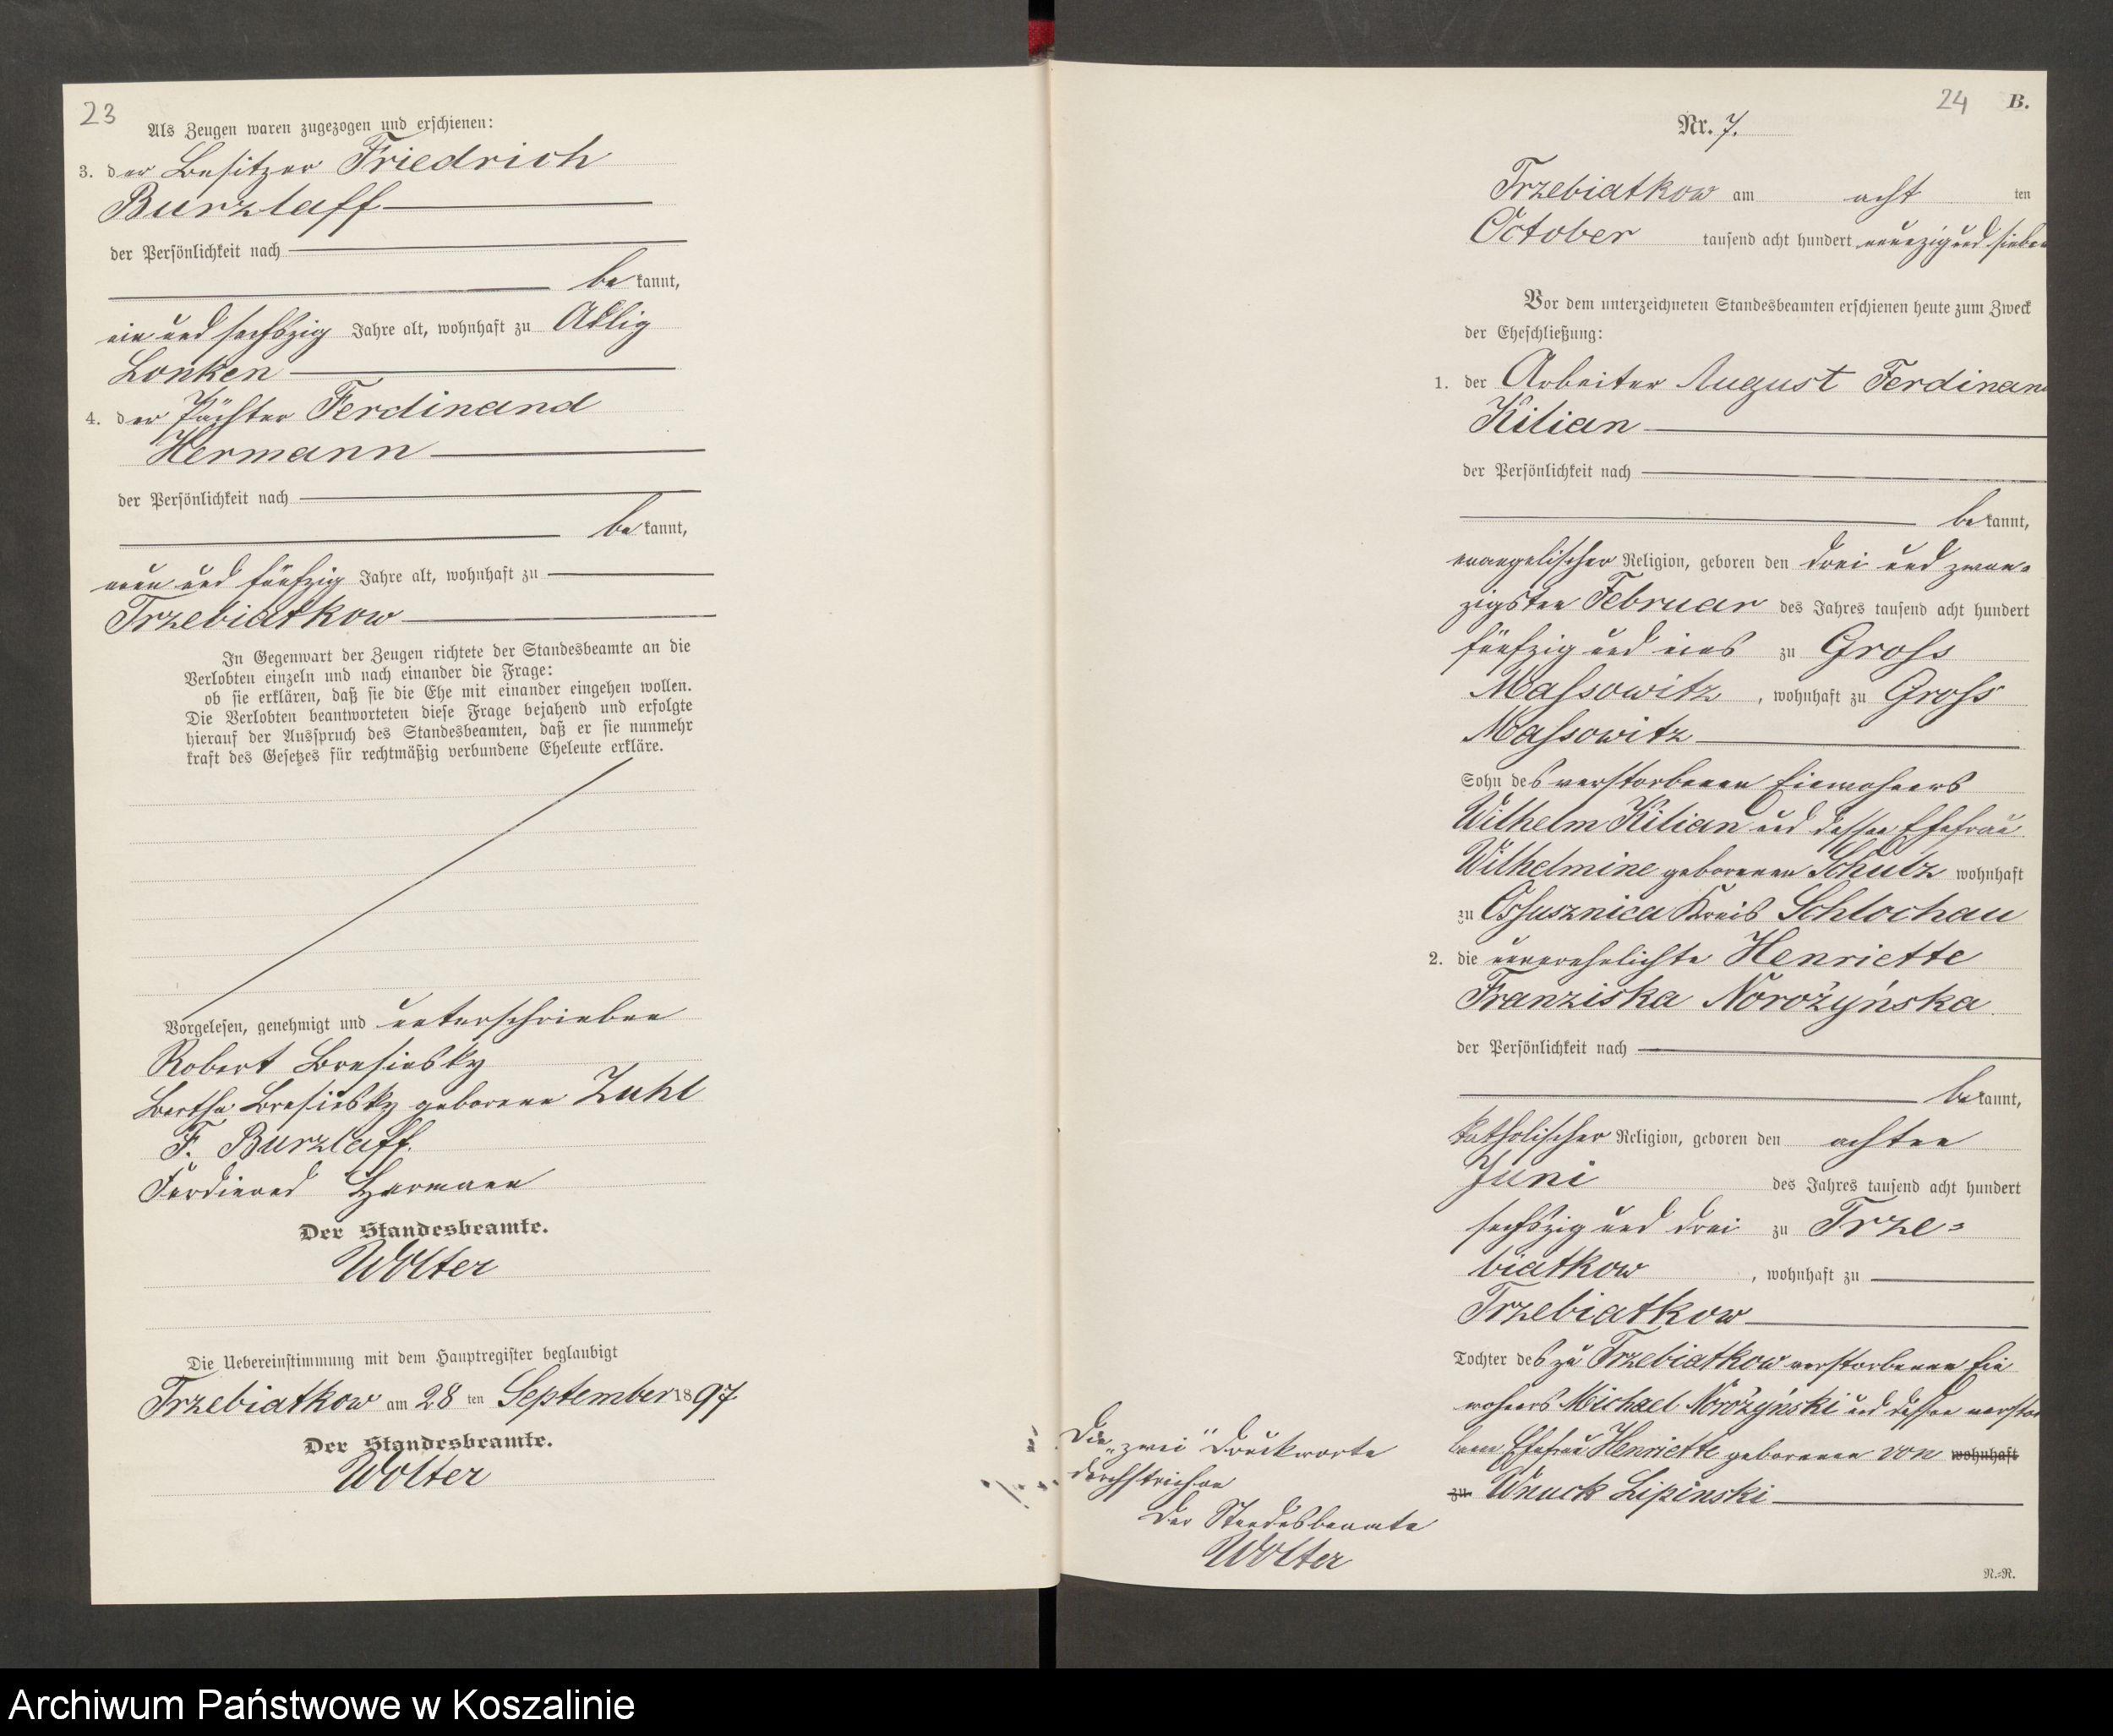 23
Als Zeugen waren zugezogen und erschienen:
3. der Besitzer Friedrich
Burzlaff
der Persönlichkeit nach
bekannt,
ein und sechszig Jahre alt, wohnhaft zu Adlig
Lonken
4. der Pächter Ferdinand
Hermann
der Persönlichkeit nach
bekannt,
neun und fünfzig Jahre alt, wohnhaft zu
Trzebiatkow
In Gegenwart der Zeugen richtete der Standesbeamte an die
Verlobten einzeln und nach einander die Frage:
ob sie erklären, daß sie die Ehe mit einander eingehen wollen.
Die Verlobten beantworteten diese Frage bejahend und erfolgte
hierauf der Ausspruch des Standesbeamten, daß er sie nunmehr
kraft des Gesetzes für rechtmäßig verbundene Eheleute erkläre.
Vorgelesen, genehmigt und unterschrieben
Robert Bresinsky
Bertha Bresinsky geborene Zuhl
F. Burzlaff.
Ferdinand Hermann
Der Standesbeamte.
Wolter
Die Uebereinstimmung mit dem Hauptregister beglaubigt
Trzebiatkow am 28 ten September 1897
Der Standesbeamte.
Wolter
24 B.
Nr. 7.
Trzebiatkow am acht ten
October tausend acht hundert neunzig und sieben
Vor dem unterzeichneten Standesbeamten erschienen heute zum Zweck
der Eheschließung:
1. der Arbeiter August Ferdinand
Kilian
der Persönlichkeit nach
bekannt,
evangelischer Religion, geboren den drei und zwan-
zigsten Februar des Jahres tausend acht hundert
fünfzig und eins zu Gross
Massowitz, wohnhaft zu Gross
Massowitz
Sohn des verstorbenen Einwohners
Wilhelm Kilian und dessen Ehefrau
Wilhelmine geborenen Schulz wohnhaft
zu Ossusznica Kreis Schlochau
2. die unverehelichte Henriette
Franziska Norożyńska
der Persönlichkeit nach
bekannt,
katholischer Religion, geboren den achten
Juni des Jahres tausend acht hundert
sechszig und drei zu Trze-
biatkow, wohnhaft zu
Trzebiatkow
Tochter des zu Trzebiatkow verstorbenen Ein
wohners Michael Norożyński und dessen verstor
benen Ehefrau Henriette geborenen von wohnhaft
zu Wnuck Lipinski
Die „zwei“ Druckworte
durchstrichen
Der Standesbeamte
Wolter
N.-R.
Archiwum Państwowe w Koszalinie